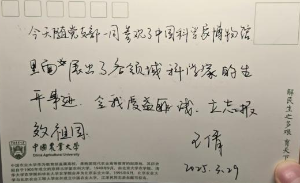 今天随党支部一同参观了中国科学家博物馆
里面展出了各领域科学家的生
平事迹,令我受益匪浅,立志报
效祖国.
王倩
2025.3.29
中國農業大學
China Agricultural University
解民生之多艰 育天